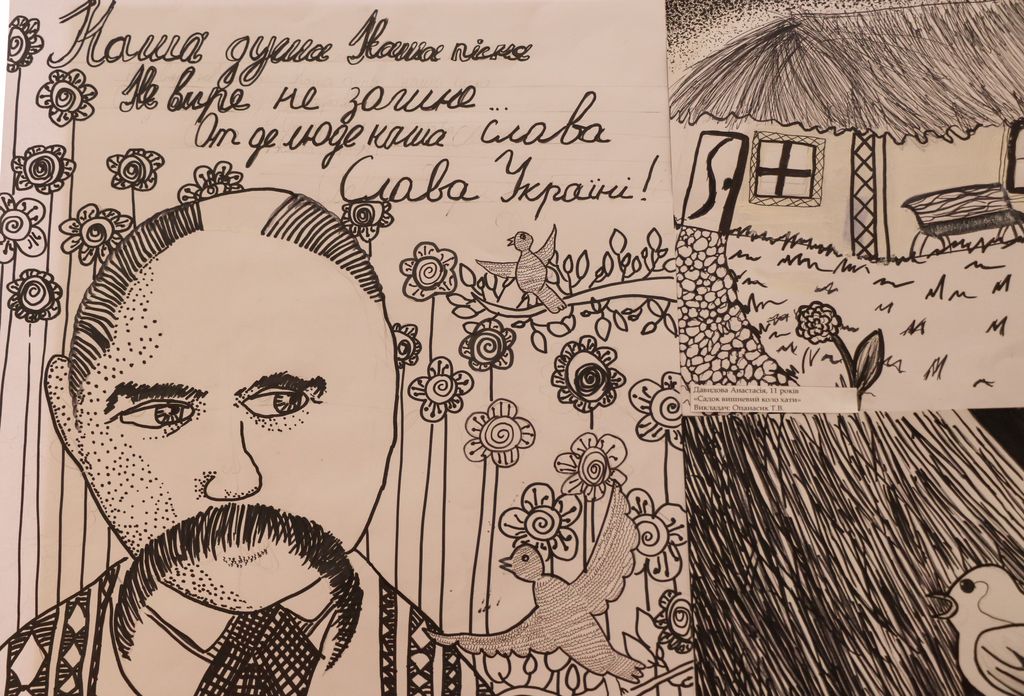 Наша душа Наша пісня
Не вмре не загине...
От де люде наша слава
Слава Україні!
Давидова Анастасія, 11 років
«Садок вишневий коло хати»
Викладач: Опанасик Т.В.